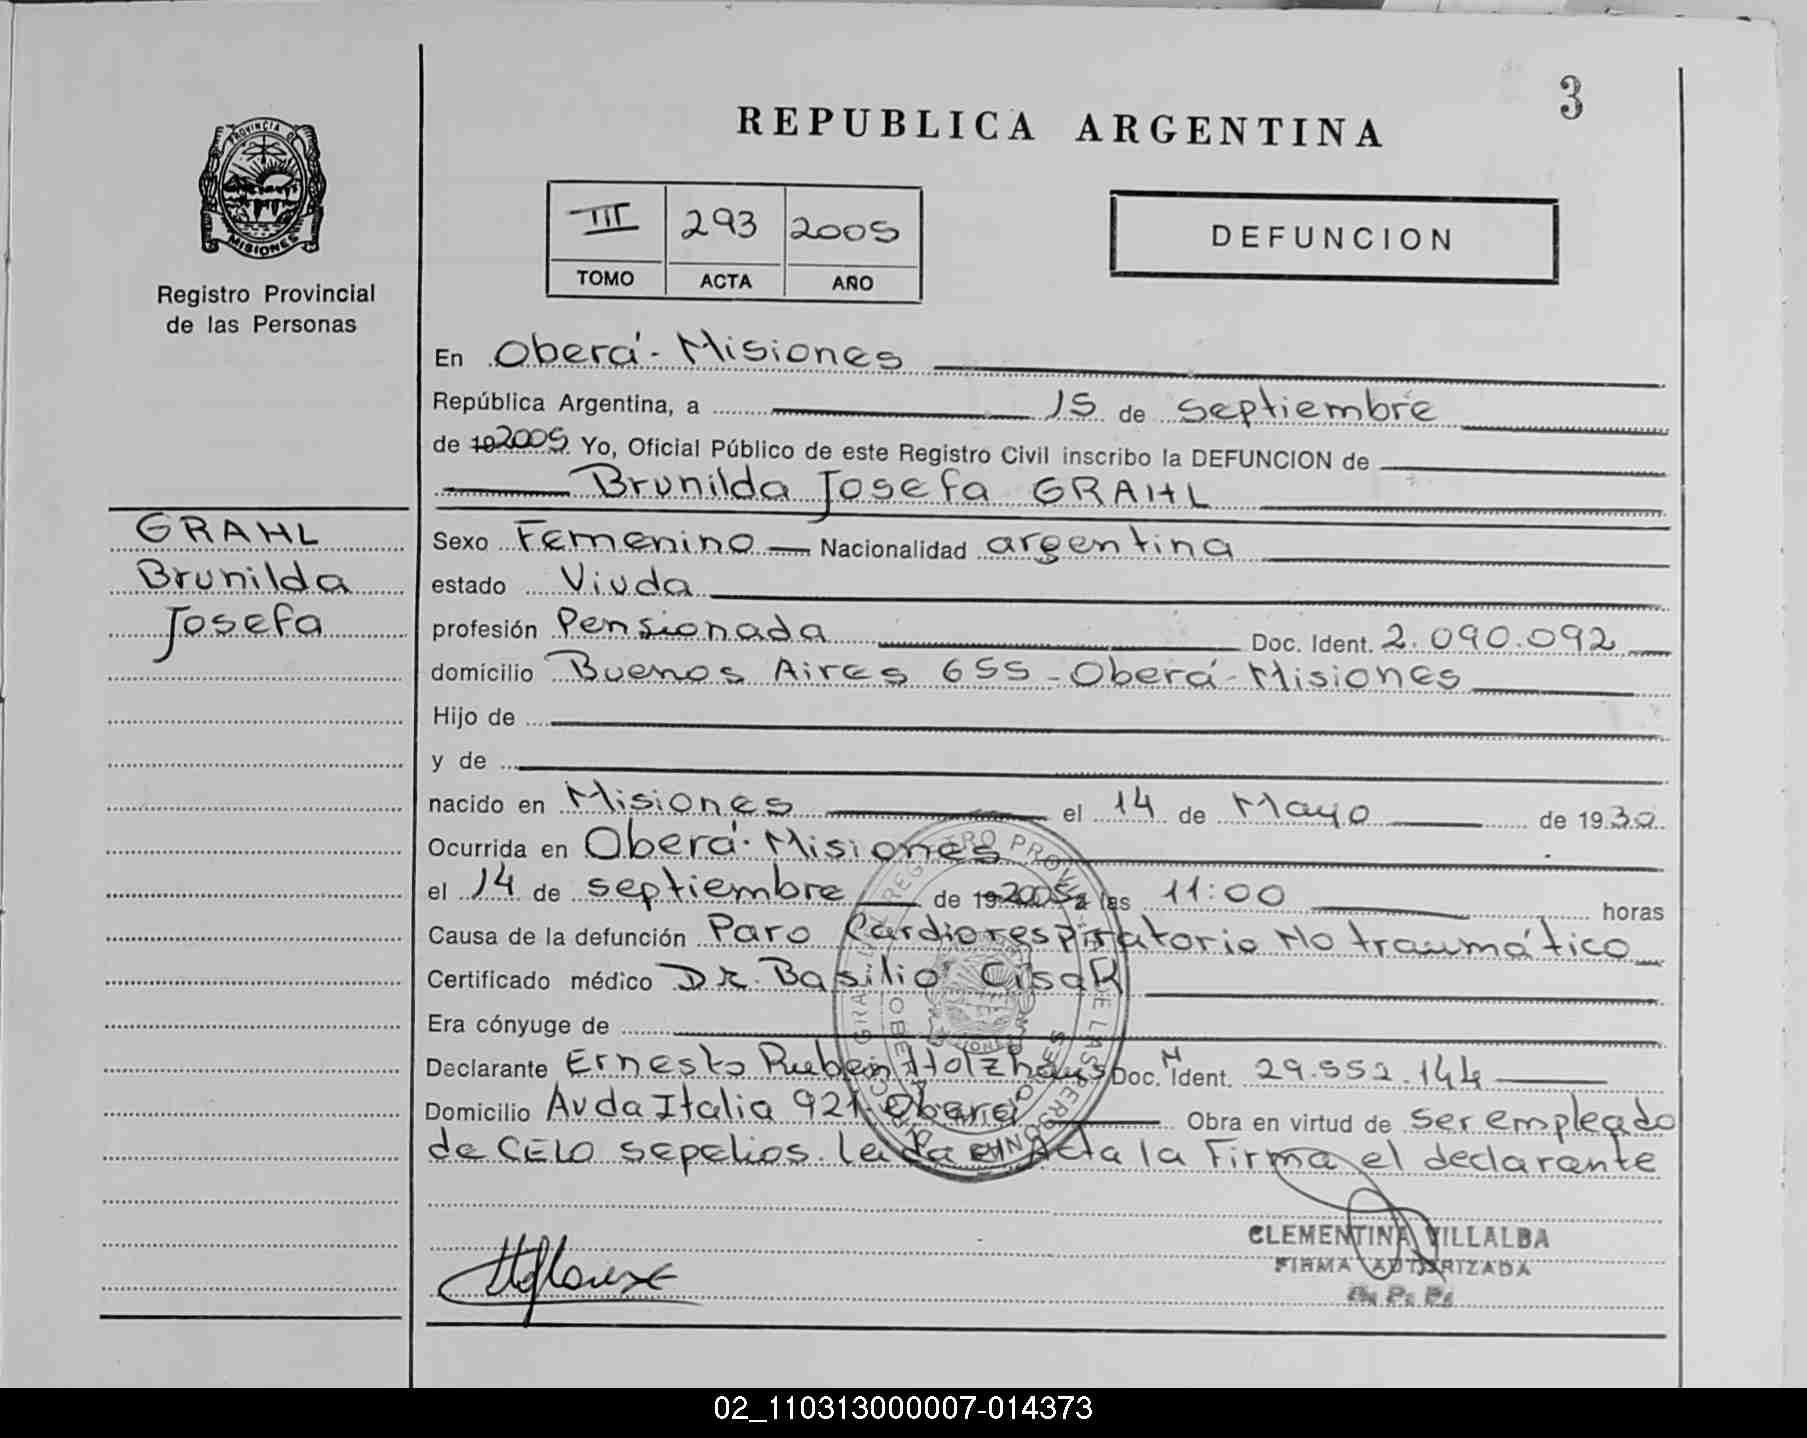 3
REPUBLICA ARGENTINA
PROVINCIA D
MISIONES
Registro Provincial
de las Personas
III 293 2005
TOMO ACTA AÑO
DEFUNCION
En Oberá - Misiones
República Argentina, a 15 de septiembre
de 19 2005 Yo, Oficial Público de este Registro Civil inscribo la DEFUNCION de
Brunilda Josefa GRAHL
GRAHL
Brunilda
Josefa
Sexo Femenino Nacionalidad argentina
estado Viuda
profesión Pensionada Doc. Ident. 2.090.092
domicilio Buenos Aires 655 - Oberá - Misiones
Hijo de
y de
nacido en Misiones el 14 de Mayo de 1930
Ocurrida en Oberá - Misiones
el 14 de septiembre de 19 2005 a las 11:00 horas
Causa de la defunción Paro Cardiorespiratorio No traumático
Certificado médico DR. Basilio CisaR
Era cónyuge de
Declarante Ernesto Ruben Holzhaus Doc. N Ident. 29.552.144
Domicilio Avda Italia 921 - Oberá Obra en virtud de ser empleado
de CELO sepelios. Leída el Acta la Firma el declarante
CLEMENTINA VILLALBA
FIRMA AUTORIZADA
02_110313000007-014373